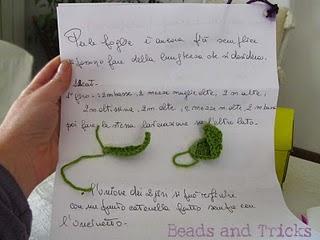 Per le foglie è ancora più semplice
si possono fare della lunghezza che si desidera.
1° giro: 2 m basse, 2 mezze maglie alte, 2 m alte,
2 m altissime, 2 m alte, 2 mezze m alte, 2 m basse
poi fare la stessa lavorazione sull'altro lato.
L'unione dei 2 giri si può
con un punto catenella fatto sempre con
l'uncinetto.
Beads and Tricks